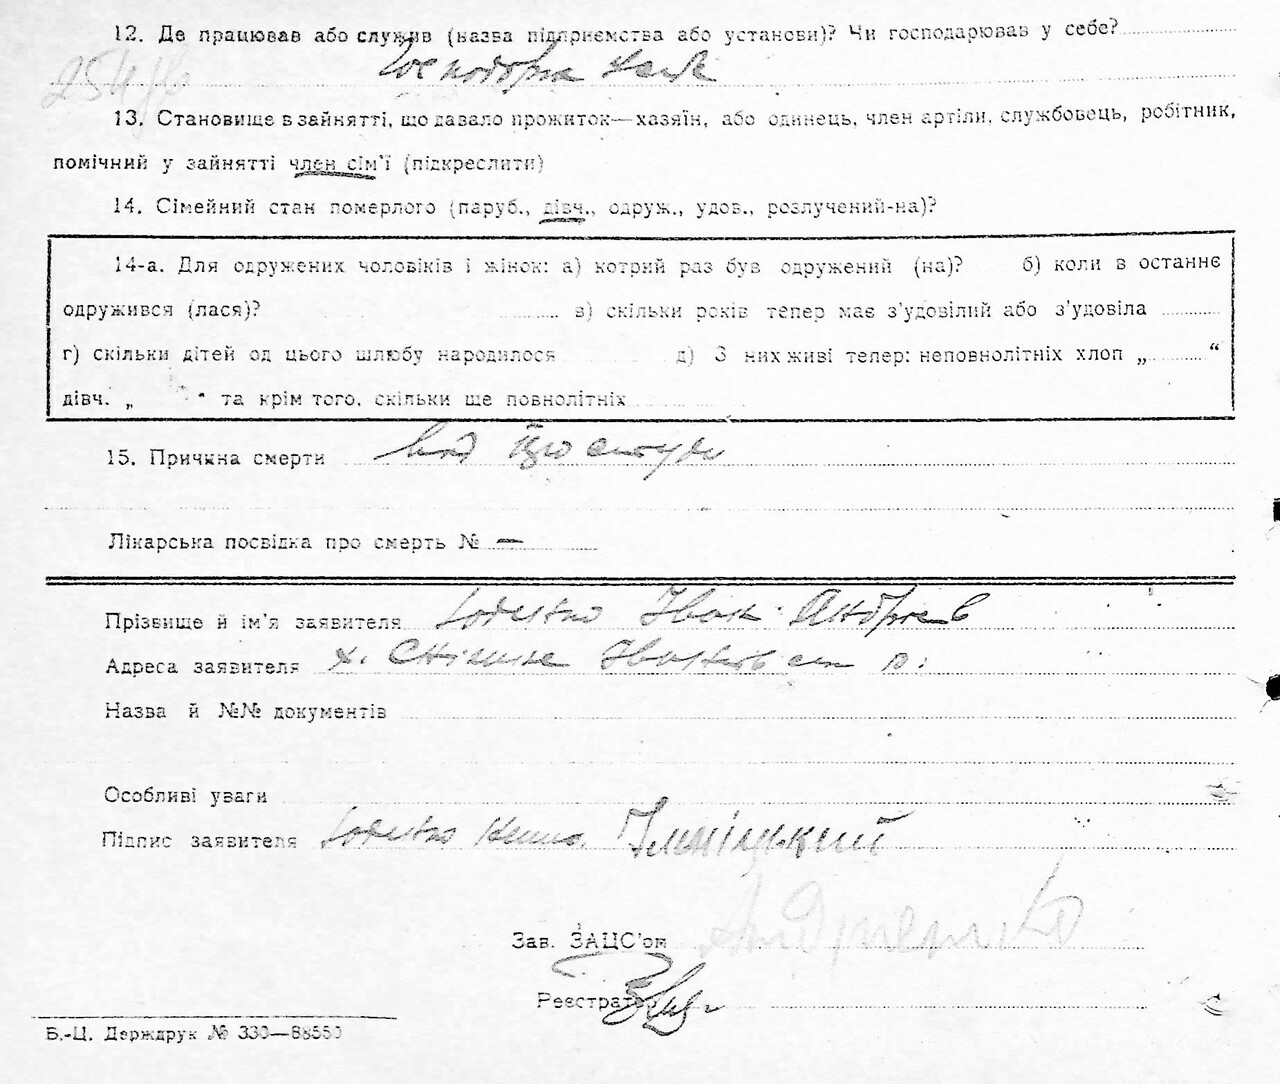 12. Де працював або служив (назва підприємства або установи)? Чи господарював у себе?
13. Становище в зайнятті, що давало прожиток—хазяїн, або одинець, член артіли, службовець, робітник,
помічний у зайнятті член сім'ї (підкреслити)
14. Сімейний стан померлого (паруб., дівч., одруж., удов., розлучений-на)?
14-а. Для одружених чоловіків і жінок: а) котрий раз був одружений (на)? б) коли в останнє
одружився (лася)? в) скільки років тепер має з'удовілий або з'удовіла
г) скільки дітей од цього шлюбу народилося д) З них живі тепер: неповнолітніх хлоп „ “
дівч. „ “ та крім того, скільки ще повнолітніх
15. Причина смерти від простуди
Лікарська посвідка про смерть № —
Прізвище й ім'я заявителя Іван Андреев
Адреса заявителя х.
Назва й №№ документів
Особливі уваги
Підпис заявителя
Зав. ЗАЦС'ом
Реєстратор
Б.-Ц. Держдрук № 330—88550